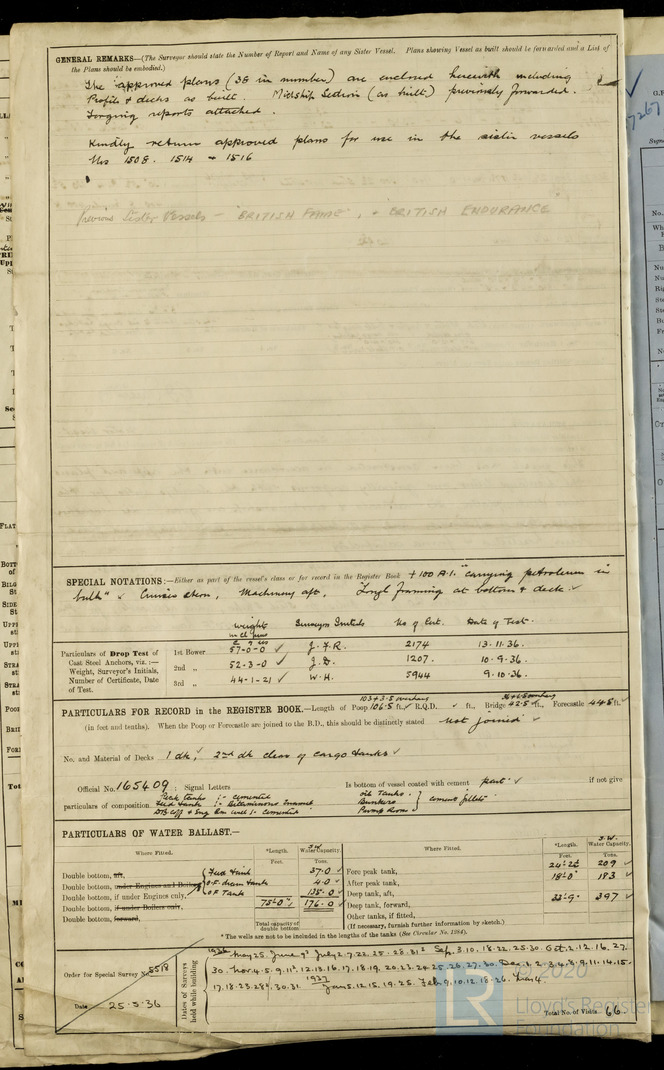 GENERAL REMARKS—(The Surveyor should state the Number of Report and Name of any Sister Vessel. Plans showing Vessel as built should be forwarded and a List of
the Plans should be embodied.)
The approved plans (38 in number) are enclosed herewith including
Profile & decks as built. Midship Section (as built) previously forwarded.
Forging reports attached.
Kindly return approved plans for use in the sister vessels
Nos 1508. 1514 & 1516
Previous Sister Vessels — "BRITISH FAME", & "BRITISH ENDURANCE"
SPECIAL NOTATIONS:—Either as part of the vessel's class or for record in the Register Book +100 A.1. "carrying petroleum in
bulk" Cruiser stern, Machinery aft, Longl framing at bottom & deck.
Weight Surveyors Initials No of Cert. Date of Test.
incl pins
Particulars of Drop Test of
Cast Steel Anchors, viz.:—
Weight, Surveyor's Initials,
Number of Certificate, Date
of Test.
1st Bower 57-0-0 J.F.R. 2174 13-11-36.
2nd „ 52-3-0 J.D. 1207. 10-9-36.
3rd „ 44-1-21 W.H. 5944 9.10.36.
PARTICULARS FOR RECORD in the REGISTER BOOK.—Length of Poop 106.5 ft., R.Q.D. ft., Bridge 42.5 ft., Forecastle 44.5 ft.
(in feet and tenths). When the Poop or Forecastle are joined to the B.D., this should be distinctly stated not joined
No. and Material of Decks 1 dk, 2nd dk clear of cargo tanks
Official No. 165409 ; Signal Letters Is bottom of vessel coated with cement part if not give
particulars of composition. Peak tanks :- cemented
Feed tank :-
oil Tanks.
Bunkers
Pump Room } cement fillets
PARTICULARS OF WATER BALLAST.—
Where Fitted. *Length. Water Capacity. Where Fitted. *Length. Water Capacity.
Feet. Tons. Feet. Tons.
Double bottom, aft, Feed tank 37.0 Fore peak tank, 209
Double bottom, under Engines and Boilers 4.0 After peak tank, 18'-0" 183
Double bottom, if under Engines only, O.F Tank 135.0 Deep tank, aft,
Double bottom, if under Boilers only, 75'-0" 176.0 Deep tank, forward, 397
Double bottom, forward, Other tanks, if fitted,
Total capacity of
double bottom (If necessary, furnish further information by sketch.)
* The wells are not to be included in the lengths of the tanks (See Circular No. 1284).
Order for Special Survey No. 5518
Date 25-5-36
Dates of Surveys
held while building
1936 May 25. June 9. July 2.7.22.25.28.31 Sep. 3.10.18.22.25.30. Oct. 2.12.16.27.
30. Nov. 4.5.9.11.12.13.16.17.18.19.20.23.24.25.26.27.30. Dec. 1.2.3.4.8.9.11.14.15.
17.18.23.28.30.31 1937 Jan 5.12.15.19.25. Feb. 9.10.12.18.26. Mar 4.
Total No. of Visits 66.
© 2020
Lloyd's Register
Foundation
LR